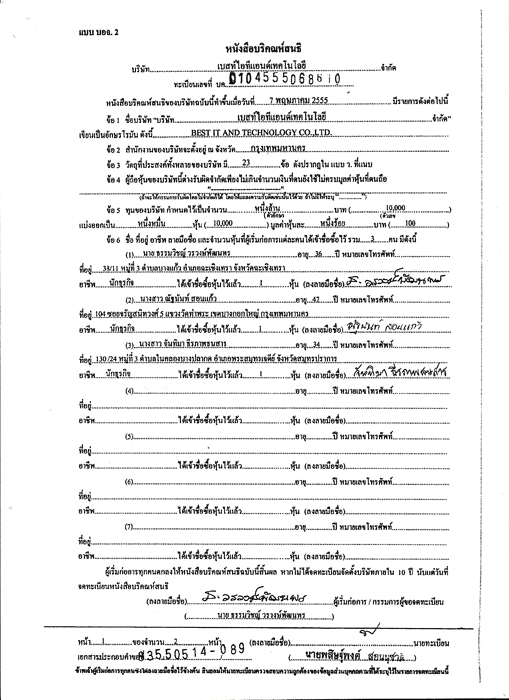 แบบ บอจ. 2
หนังสือบริคณห์สนธิ
บริษัท เบสท์ไอทีแอนด์เทคโนโลยี จำกัด
ทะเบียนเลขที่ บค. 0104555068610
หนังสือบริคณห์สนธิของบริษัทฉบับนี้ทำขึ้นเมื่อวันที่ 7 พฤษภาคม 2555 มีรายการดังต่อไปนี้
ข้อ 1 ชื่อบริษัท "บริษัท เบสท์ไอทีแอนด์เทคโนโลยี จำกัด"
เขียนเป็นอักษรโรมัน ดังนี้ BEST IT AND TECHNOLOGY CO.,LTD.
ข้อ 2 สำนักงานของบริษัทจะตั้งอยู่ ณ จังหวัด กรุงเทพมหานคร
ข้อ 3 วัตถุที่ประสงค์ทั้งหลายของบริษัท มี 23 ข้อ ดังปรากฏใน แบบ ว. ที่แนบ
ข้อ 4 ผู้ถือหุ้นของบริษัทนี้ต่างรับผิดจำกัดเพียงไม่เกินจำนวนเงินที่ตนยังใช้ไม่ครบมูลค่าหุ้นที่ตนถือ
ข้อ 5 ทุนของบริษัท กำหนดไว้เป็นจำนวน หนึ่งล้าน บาท ( 10,000 )
ตัวอักษร ตัวเลข
แบ่งออกเป็น หนึ่งหมื่น หุ้น ( 10,000 ) มูลค่าหุ้นละ หนึ่งร้อย บาท ( 100 )
ข้อ 6 ชื่อ ที่อยู่ อาชีพ ลายมือชื่อ และจำนวนหุ้นที่ผู้เริ่มก่อการแต่ละคนได้เข้าชื่อซื้อไว้ รวม 3 คน มีดังนี้
(1) นาย ธรรมวิชญ์ วรวงษ์พัฒนทร อายุ 36 ปี หมายเลขโทรศัพท์
ที่อยู่ 33/11 หมู่ที่ 3 ตำบลบางแก้ว อำเภอฉะเชิงเทรา จังหวัดฉะเชิงเทรา
อาชีพ นักธุรกิจ ได้เข้าชื่อซื้อหุ้นไว้แล้ว 1 หุ้น (ลงลายมือชื่อ)
(2) นางสาว ณัฐนันท์ สอนแก้ว อายุ 42 ปี หมายเลขโทรศัพท์
ที่อยู่ 104 ซอยจรัญสนิทวงศ์ 5 แขวงวัดท่าพระ เขตบางกอกใหญ่ กรุงเทพมหานคร
อาชีพ นักธุรกิจ ได้เข้าชื่อซื้อหุ้นไว้แล้ว 1 หุ้น (ลงลายมือชื่อ)
(3) นางสาว จันทิมา ธิราพรธนสาร อายุ 34 ปี หมายเลขโทรศัพท์
ที่อยู่ 130/24 หมู่ที่ 3 ตำบลในคลองบางปลากด อำเภอพระสมุทรเจดีย์ จังหวัดสมุทรปราการ
อาชีพ นักธุรกิจ ได้เข้าชื่อซื้อหุ้นไว้แล้ว 1 หุ้น (ลงลายมือชื่อ)
(4) อายุ ปี หมายเลขโทรศัพท์
ที่อยู่
อาชีพ ได้เข้าชื่อซื้อหุ้นไว้แล้ว หุ้น (ลงลายมือชื่อ)
(5) อายุ ปี หมายเลขโทรศัพท์
ที่อยู่
อาชีพ ได้เข้าชื่อซื้อหุ้นไว้แล้ว หุ้น (ลงลายมือชื่อ)
(6) อายุ ปี หมายเลขโทรศัพท์
ที่อยู่
อาชีพ ได้เข้าชื่อซื้อหุ้นไว้แล้ว หุ้น (ลงลายมือชื่อ)
(7) อายุ ปี หมายเลขโทรศัพท์
ที่อยู่
อาชีพ ได้เข้าชื่อซื้อหุ้นไว้แล้ว หุ้น (ลงลายมือชื่อ)
ผู้เริ่มก่อการทุกคนตกลงให้หนังสือบริคณห์สนธิฉบับนี้สิ้นผล หากไม่ได้จดทะเบียนจัดตั้งบริษัทภายใน 10 ปี นับแต่วันที่
จดทะเบียนหนังสือบริคณห์สนธิ
(ลงลายมือชื่อ) ผู้เริ่มก่อการ / กรรมการผู้ขอจดทะเบียน
( นาย ธรรมวิชญ์ วรวงษ์พัฒนทร )
หน้า 1 ของจำนวน 2 หน้า (ลงลายมือชื่อ) นายทะเบียน
เอกสารประกอบคำขอที่ 3550514-089